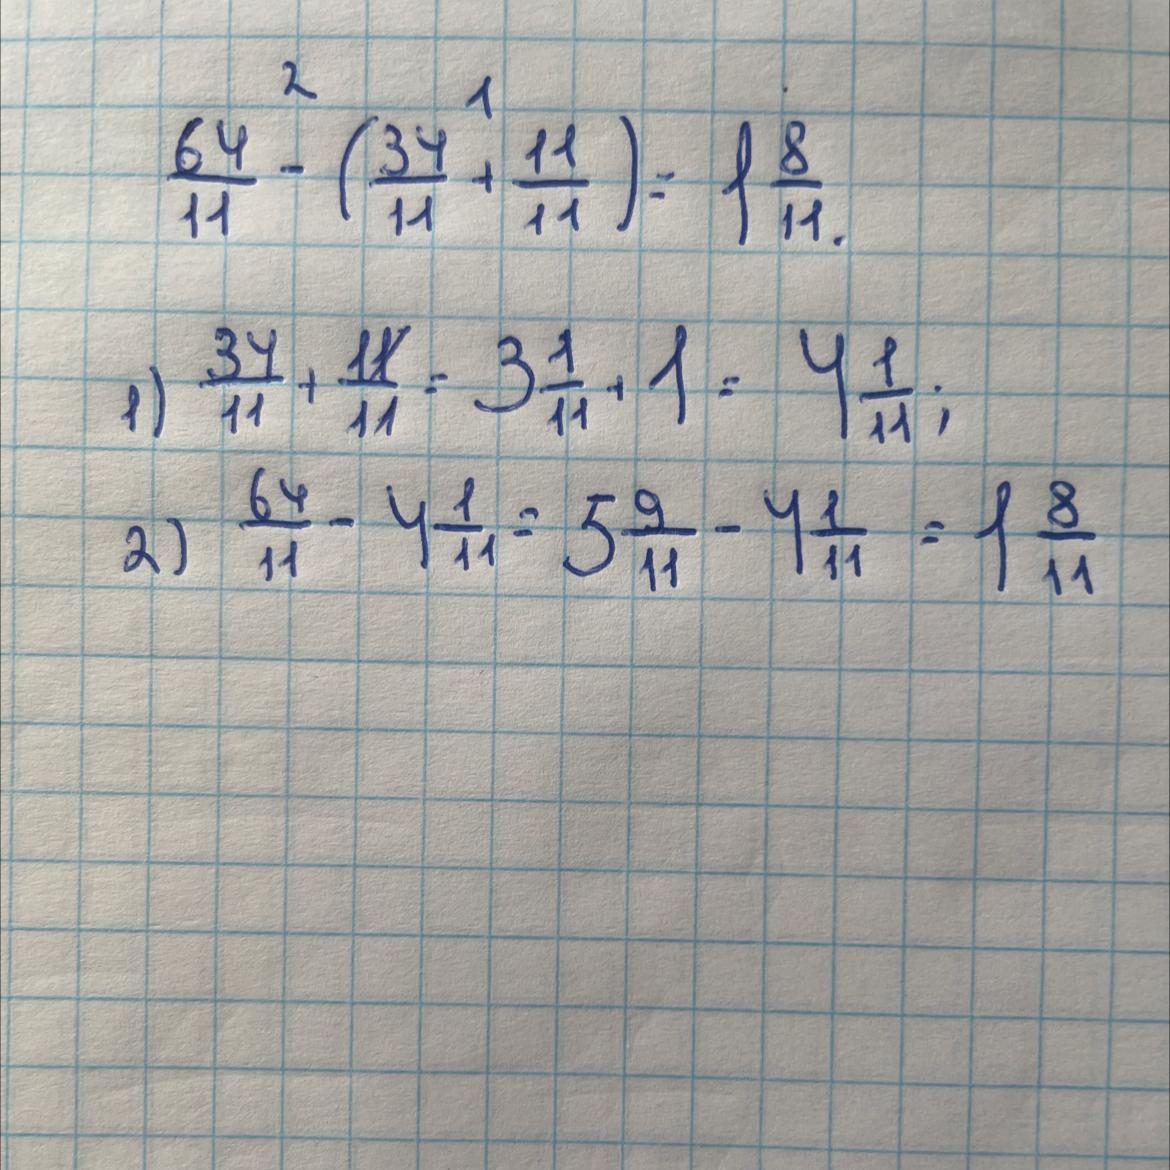 2 1
64/11 - (34/11 + 11/11) = 1 8/11.
1) 34/11 + 11/11 = 3 1/11 + 1 = 4 1/11;
2) 64/11 - 4 1/11 = 5 9/11 - 4 1/11 = 1 8/11